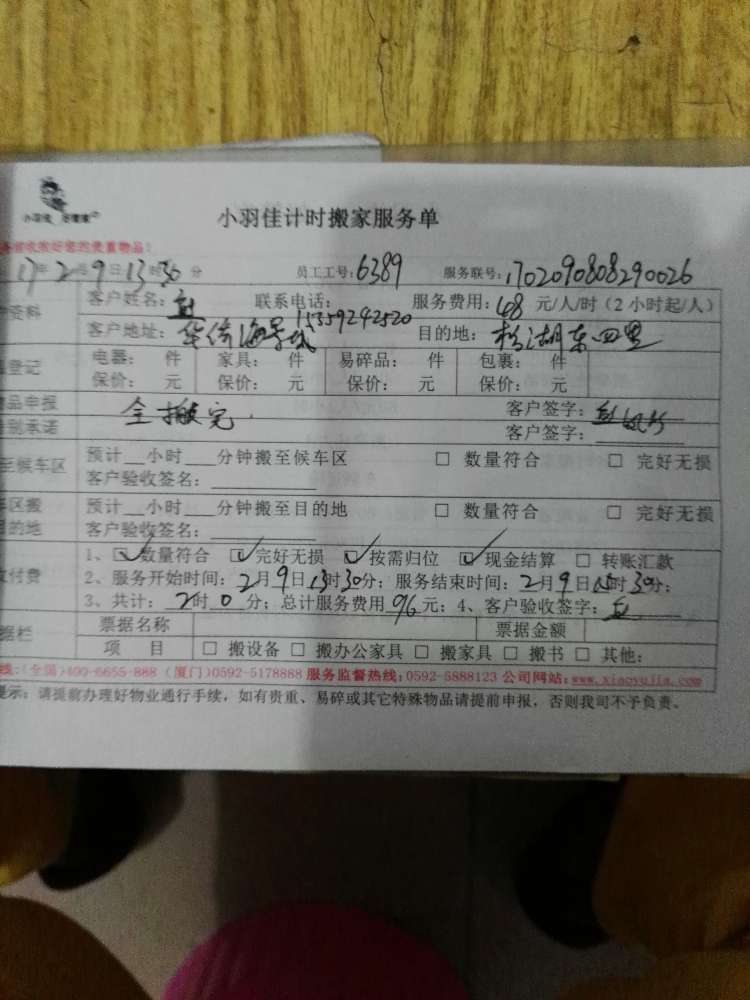 小羽佳计时搬家服务单
收好您的贵重物品!
17年2月9日13时30分 员工工号:6389 服务联号:1702090808290026
资料 客户姓名: 联系电话:15359242520 服务费用:48元/人/时(2小时起/人)
客户地址:华信海景城 目的地:松湖东四里
登记 电器: 件 家具: 件 易碎品: 件 包裹: 件
保价: 元 保价: 元 保价: 元 保价: 元
品申报 全搬完. 客户签字:
别承诺 客户签字:
至候车区 预计__小时___分钟搬至候车区 □ 数量符合 □ 完好无损
客户验收签名:
车区搬 预计__小时___分钟搬至目的地 □ 数量符合 □ 完好无损
目的地 客户验收签名:
付费 1、☑数量符合 ☑完好无损 ☑按需归位 ☑现金结算 □ 转账汇款
2、服务开始时间:2月9日13时30分;服务结束时间:2月9日15时30分;
3、共计:2时0分;总计服务费用96元;4、客户验收签字:
据栏 票据名称 票据金额
项 目 □ 搬设备 □ 搬办公家具 □ 搬家具 □ 搬书 □ 其他:
线:(全国)400-6655-888 (厦门)0592-5178888 服务监督热线:0592-5888123 公司网站:www.xiaoyujia.com
提示:请提前办理好物业通行手续,如有贵重、易碎或其它特殊物品请提前申报,否则我司不予负责。